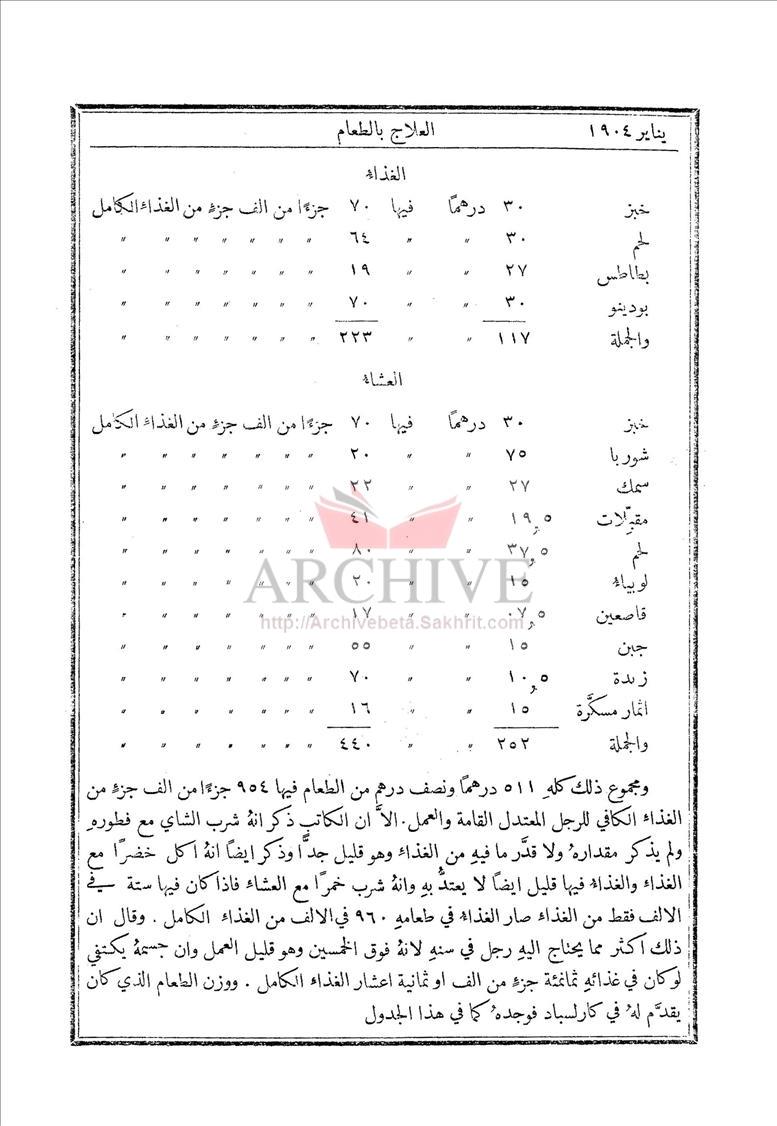 يناير ١٩٠٤ العلاج بالطعام
الغذاء
خبز ٣٠ درهمًا فيها ٧٠ جزءًا من الف جزءٍ من الغذاء الكامل
لحم ٣٠ " " ٦٤ " " " " " " "
بطاطس ٢٧ " " ١٩ " " " " " " "
بودينو ٣٠ " " ٧٠ " " " " " " "
والجملة ١١٧ " " ٢٢٣ " " " " " " "
العشاء
خبز ٣٠ درهمًا فيها ٧٠ جزءًا من الف جزءٍ من الغذاء الكامل
شوربا ٧٥ " " ٢٠ " " " " " " "
سمك ٢٧ " " ٢٢ " " " " " " "
مقبّلات ١٩,٥ " " ٤١ " " " " " " "
لحم ٣٧,٥ " " ٨٠ " " " " " " "
لوبياء ١٥ " " ٢٠ " " " " " " "
ARCHIVE
قاصعين ٠٧,٥ " " ١٧ " " " " " " "
http://Archivebeta.Sakhrit.com
جبن ١٥ " " ٥٥ " " " " " " "
زبدة ١٠,٥ " " ٧٠ " " " " " " "
اثمار مسكَّرة ١٥ " " ١٦ " " " " " " "
والجملة ٢٥٢ " " ٤٤٠ " " " " " " "
ومجموع ذلك كلهِ ٥١١ درهمًا ونصف درهم من الطعام فيها ٩٥٤ جزءًا من الف جزءٍ من
الغذاء الكافي للرجل المعتدل القامة والعمل. الاَّ ان الكاتب ذكر انهُ شرب الشاي مع فطورهِ
ولم يذكر مقدارهُ ولا قدَّر ما فيهِ من الغذاء وهو قليل جدًّا وذكر ايضًا انهُ اكل خضرًا مع
الغذاء والغذاء فيها قليل ايضًا لا يعتدُّ بهِ وانهُ شرب خمرًا مع العشاء فاذا كان فيها ستة في
الالف فقط من الغذاء صار الغذاء في طعامهِ ٩٦٠ في الالف من الغذاء الكامل . وقال ان
ذلك اكثر مما يحتاج اليهِ رجل في سنهِ لانهُ فوق الخمسين وهو قليل العمل وان جسمهُ يكتفي
لوكان في غذائهِ ثمانمئة جزءٍ من الف او ثمانية اعشار الغذاء الكامل . ووزن الطعام الذي كان
يقدَّم لهُ في كارلسباد فوجدهُ كما في هذا الجدول